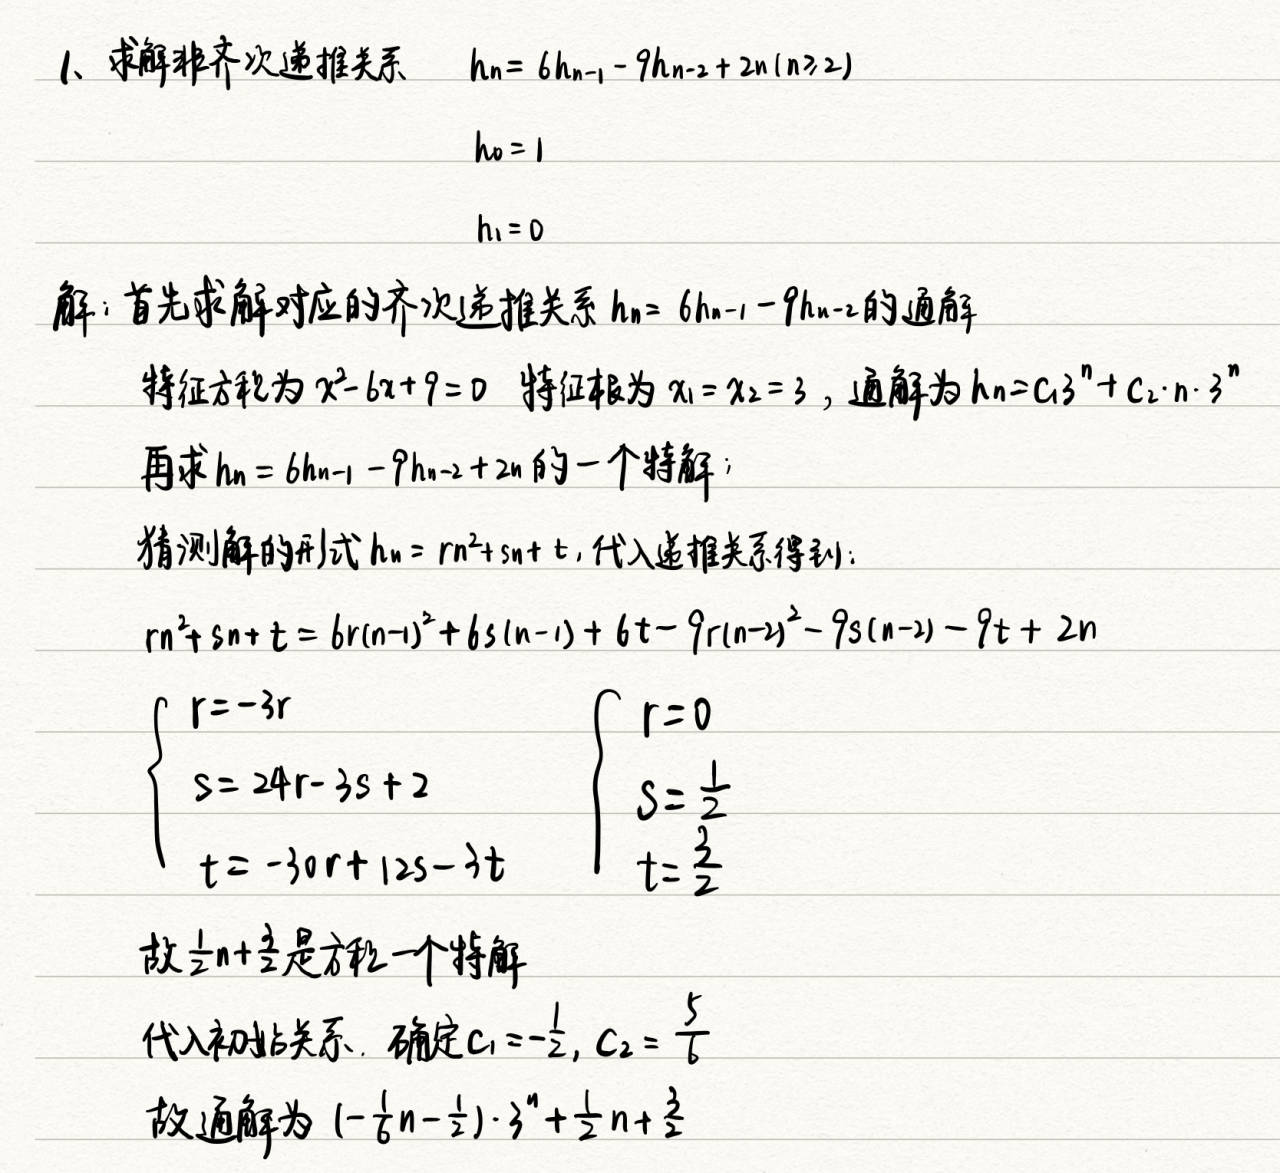 1、求解非齐次递推关系 hn = 6hn-1 - 9hn-2 + 2n (n≥2)
h0 = 1
h1 = 0
解：首先求解对应的齐次递推关系 hn = 6hn-1 - 9hn-2 的通解
特征方程为 x²-6x+9=0 特征根为 x1 = x2 = 3，通解为 hn = C1 3ⁿ + C2·n·3ⁿ
再求 hn = 6hn-1 - 9hn-2 + 2n 的一个特解；
猜测解的形式 hn = rn²+sn+t，代入递推关系得到：
rn²+sn+t = 6r(n-1)²+6s(n-1)+6t-9r(n-2)²-9s(n-2)-9t+2n
r=-3r r=0
s=24r-3s+2 s=1/2
t=-30r+12s-3t t=3/2
故 1/2 n + 3/2 是方程一个特解
代入初始关系. 确定 C1 = -1/2, C2 = 5/6
故通解为 (-1/6 n - 1/2)·3ⁿ + 1/2 n + 3/2